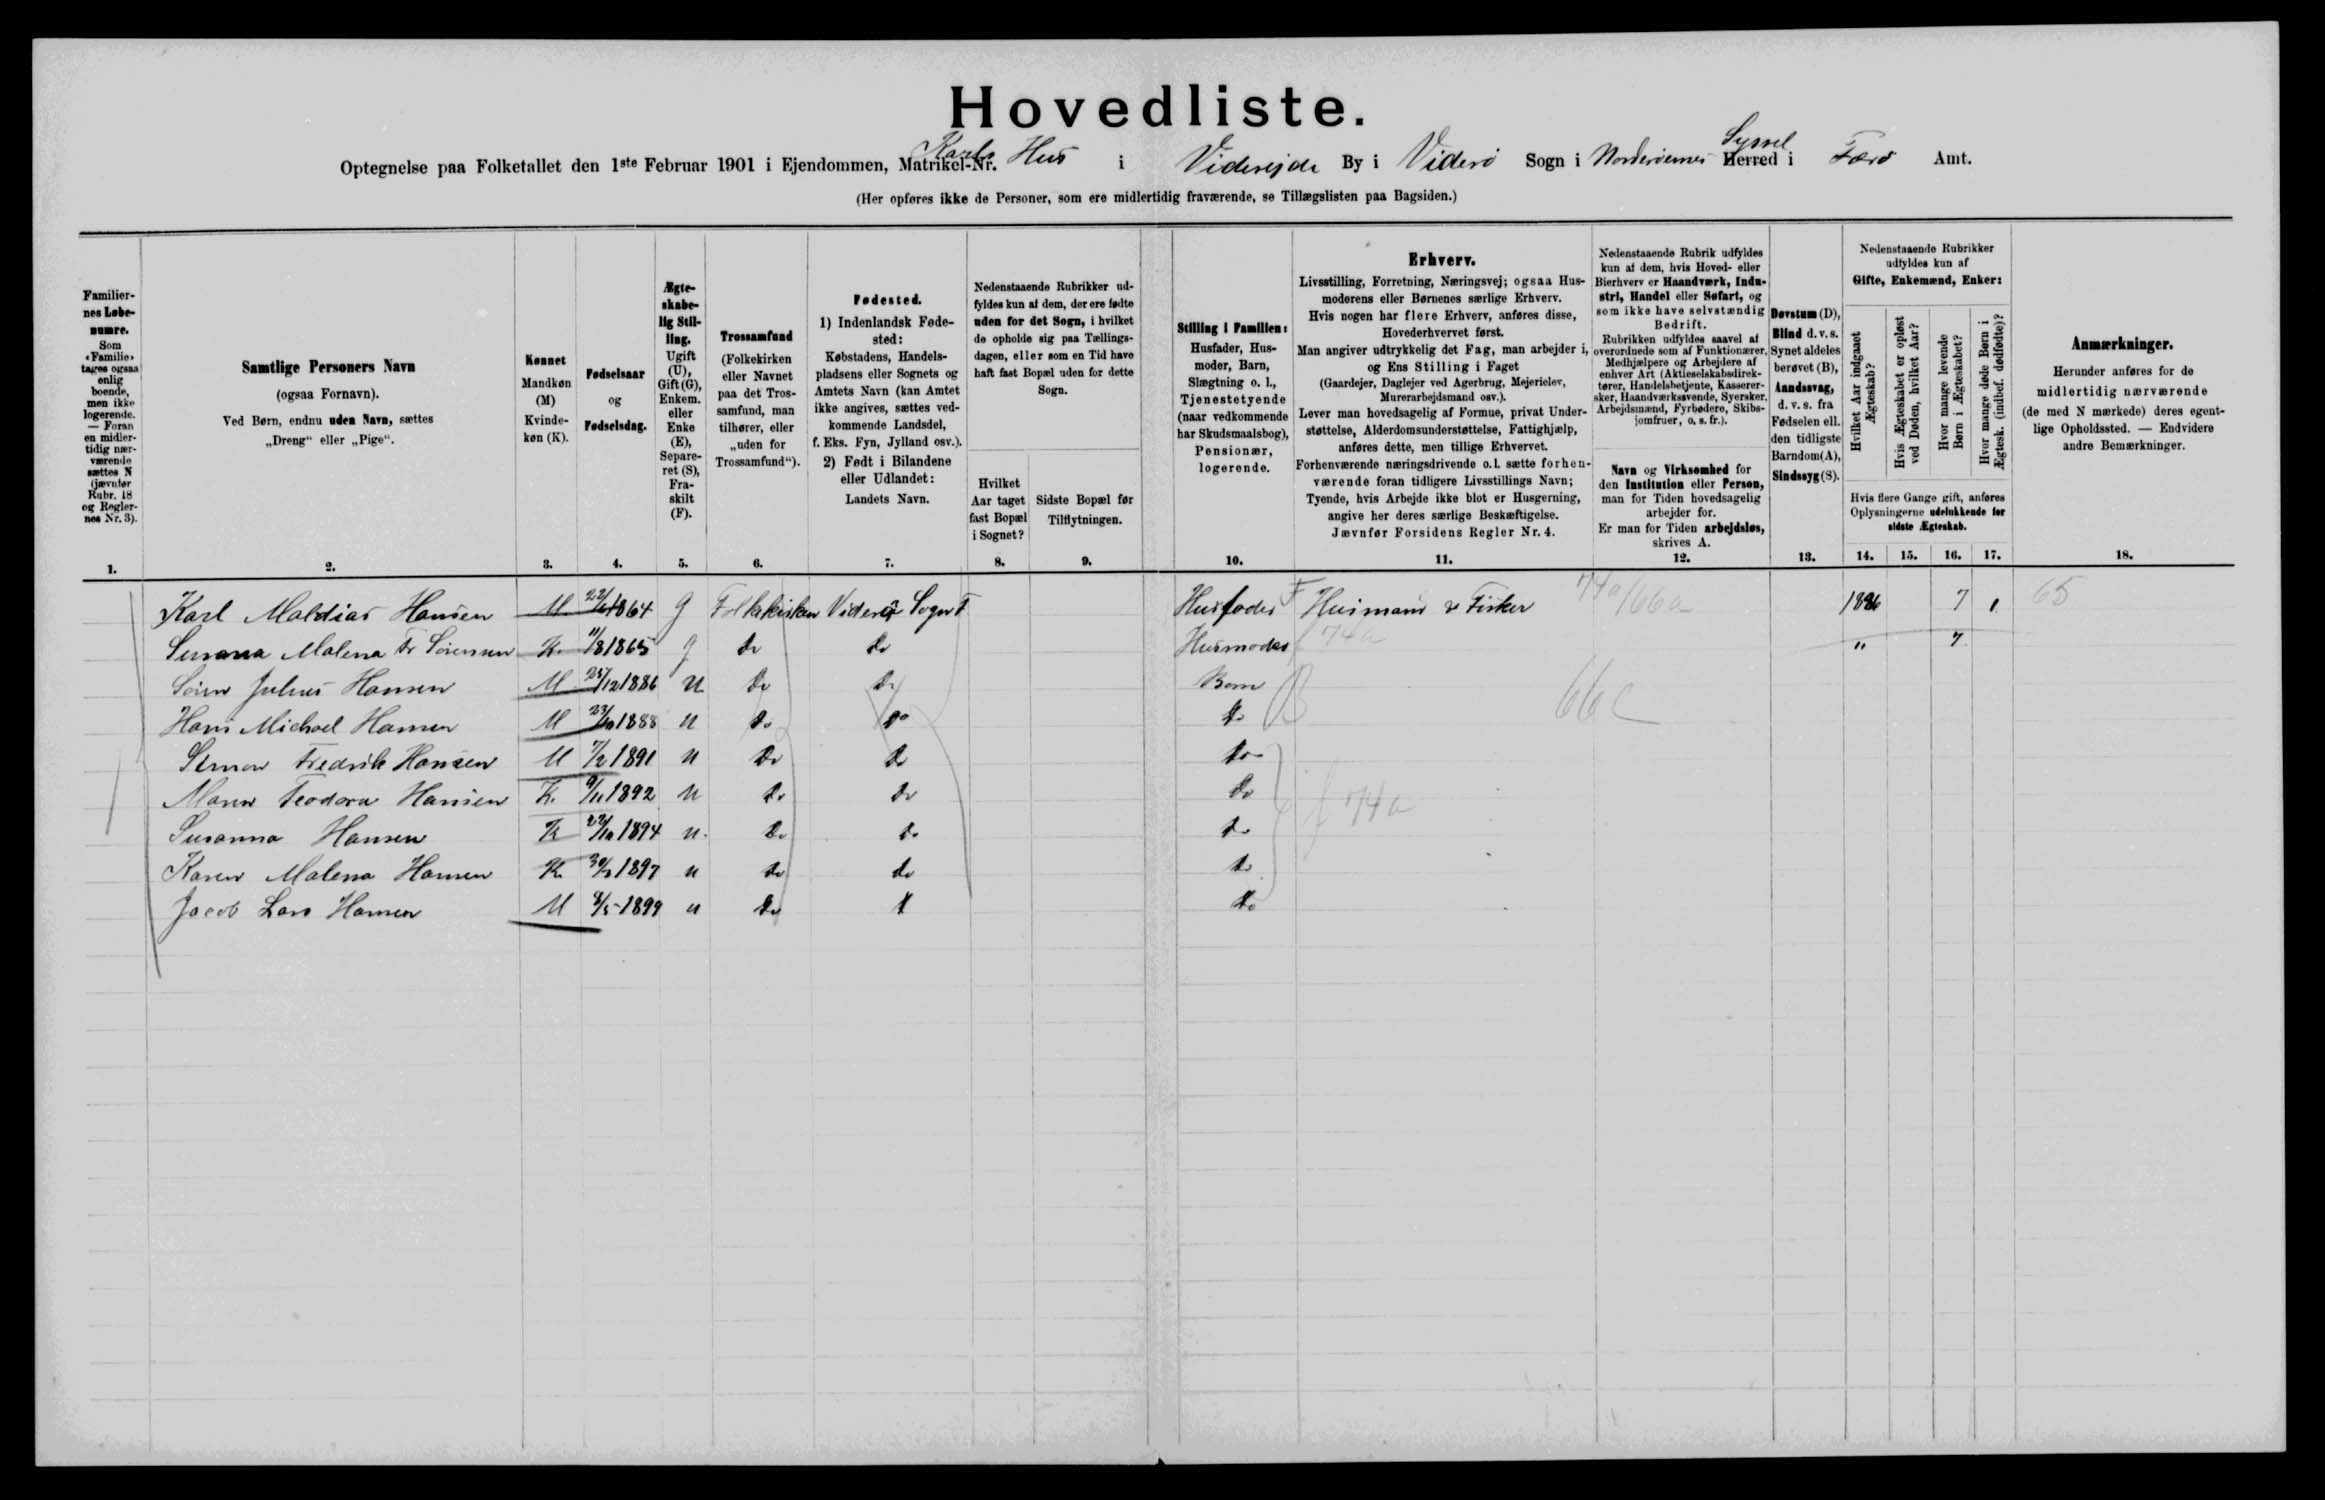 Hovedliste.
Optegnelse paa Folketallet den 1ste Februar 1901 i Ejendommen, Matrikel-Nr. Karls Hus i Viderejde By i Viderö Sogn i Norderöernes Syssel Herred i Færø Amt.
(Her opføres ikke de Personer, som ere midlertidig fraværende, se Tillægslisten paa Bagsiden.)
Familiernes Løbenumre. Som «Familie» tages ogsaa enlig boende, men ikke logerende. — Foran en midlertidig nærværende sættes N (jævnfør Rubr. 18 og Reglernes Nr. 3).
Samtlige Personers Navn (ogsaa Fornavn). Ved Børn, endnu uden Navn, sættes „Dreng“ eller „Pige“.
Kønnet Mandkøn (M) Kvindekøn (K).
Fødselsaar og Fødselsdag.
Ægteskabelig Stilling. Ugift (U), Gift (G), Enkem. eller Enke (E), Separeret (S), Fraskilt (F).
Trossamfund (Folkekirken eller Navnet paa det Trossamfund, man tilhører, eller „uden for Trossamfund“).
Fødested. 1) Indenlandsk Fødested: Købstadens, Handelspladsens eller Sognets og Amtets Navn (kan Amtet ikke angives, sættes vedkommende Landsdel, f. Eks. Fyn, Jylland osv.). 2) Født i Bilandene eller Udlandet: Landets Navn.
Nedenstaaende Rubrikker udfyldes kun af dem, der ere fødte uden for det Sogn, i hvilket de opholde sig paa Tællingsdagen, eller som en Tid have haft fast Bopæl uden for dette Sogn.
Hvilket Aar taget fast Bopæl i Sognet?
Sidste Bopæl før Tilflytningen.
Stilling i Familien: Husfader, Husmoder, Barn, Slægtning o. l., Tjenestetyende (naar vedkommende har Skudsmaalsbog), Pensionær, logerende.
Erhverv.
Livsstilling, Forretning, Næringsvej; ogsaa Husmoderens eller Børnenes særlige Erhverv.
Hvis nogen har flere Erhverv, anføres disse, Hovederhvervet først.
Man angiver udtrykkelig det Fag, man arbejder i, og Ens Stilling i Faget
(Gaardejer, Daglejer ved Agerbrug, Mejerielev, Murerarbejdsmand osv.).
Lever man hovedsagelig af Formue, privat Understøttelse, Alderdomsunderstøttelse, Fattighjælp, anføres dette, men tillige Erhvervet.
Forhenværende næringsdrivende o. l. sætte forhenværende foran tidligere Livsstillings Navn;
Tyende, hvis Arbejde ikke blot er Husgerning, angive her deres særlige Beskæftigelse.
Jævnfør Forsidens Regler Nr. 4.
Nedenstaaende Rubrik udfyldes kun af dem, hvis Hoved- eller Bierhverv er Haandværk, Industri, Handel eller Søfart, og som ikke have selvstændig Bedrift.
Rubrikken udfyldes saavel af overordnede som af Funktionærer, Medhjælpere og Arbejdere af enhver Art (Aktieselskabsdirektører, Handelsbetjente, Kasserersker, Haandværkssvende, Syersker, Arbejdsmænd, Fyrbødere, Skibsjomfruer, o. s. fr.).
Navn og Virksomhed for den Institution eller Person, man for Tiden hovedsagelig arbejder for.
Er man for Tiden arbejdsløs, skrives A.
Døvstum (D), Blind d. v. s. Synet aldeles berøvet (B), Aandssvag, d. v. s. fra Fødselen ell. den tidligste Barndom (A), Sindssyg (S).
Nedenstaaende Rubrikker udfyldes kun af Gifte, Enkemænd, Enker:
Hvilket Aar indgaaet Ægteskab?
Hvis Ægteskabet er opløst ved Døden, hvilket Aar?
Hvor mange levende Børn i Ægteskabet?
Hvor mange døde Børn i Ægtesk. (indbef. dødfødte)?
Hvis flere Gange gift, anføres Oplysningerne udelukkende for sidste Ægteskab.
Anmærkninger. Herunder anføres for de midlertidig nærværende (de med N mærkede) deres egentlige Opholdssted. — Endvidere andre Bemærkninger.
1. 2. 3. 4. 5. 6. 7. 8. 9. 10. 11. 12. 13. 14. 15. 16. 17. 18.
Karl Maldias Hansen M 1864 g Folkekirken Viderö Sogn F Husfader F Husmand & Fisker 74a/66a 7 1 65
Susanna Malena Fr Sörensen K. 11/8 1865 g do do Husmoder 74a " 7
Sörin Julius Hansen M 25/12 1886 U do do Barn
Hans Michael Hansen M 23/10 1888 U do do do B 66c
Simon Fredrik Hansen M 7/2 1891 U do do do
Maren Teodora Hansen K. 9/11 1892 U do do do 74a
Susanna Hansen K 22/10 1894 U. do do do
Karen Malena Hansen K. 1897 U do do do
Jacob Lars Hansen M 8/5 1899 U do do